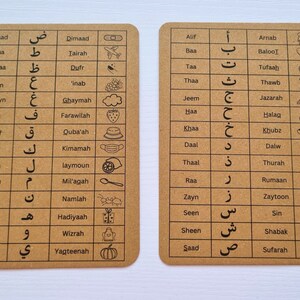 aad ض Dimaad
ط Tairah
ظ Dufr
ع 'inab
غ Ghaymah
ف Farawilah
ق Quba'ah
ك Kimamah
ل laymoun
م Mil'agah
ن Namlah
هـ Hadiyaah
و Wizrah
ي Yagteenah
Alif أ Arnab
Baa ب BalooT
Taa ت Tufaah
Thaa ث Tha
Jeem ج Jazarah
Haa ح Halag
Khaa خ Khubz
Daal د Dalw
Thaal ذ Thurah
Raa ر Rumaan
Zayn ز Zaytoon
Seen س Sin
Sheen ش Shabak
Saad ص Sufarah